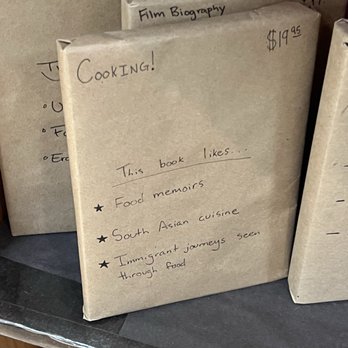 Film Biography
COOKING!
$19.95
This book likes...
★ Food memoirs
★ South Asian cuisine
★ Immigrant journeys seen
through food